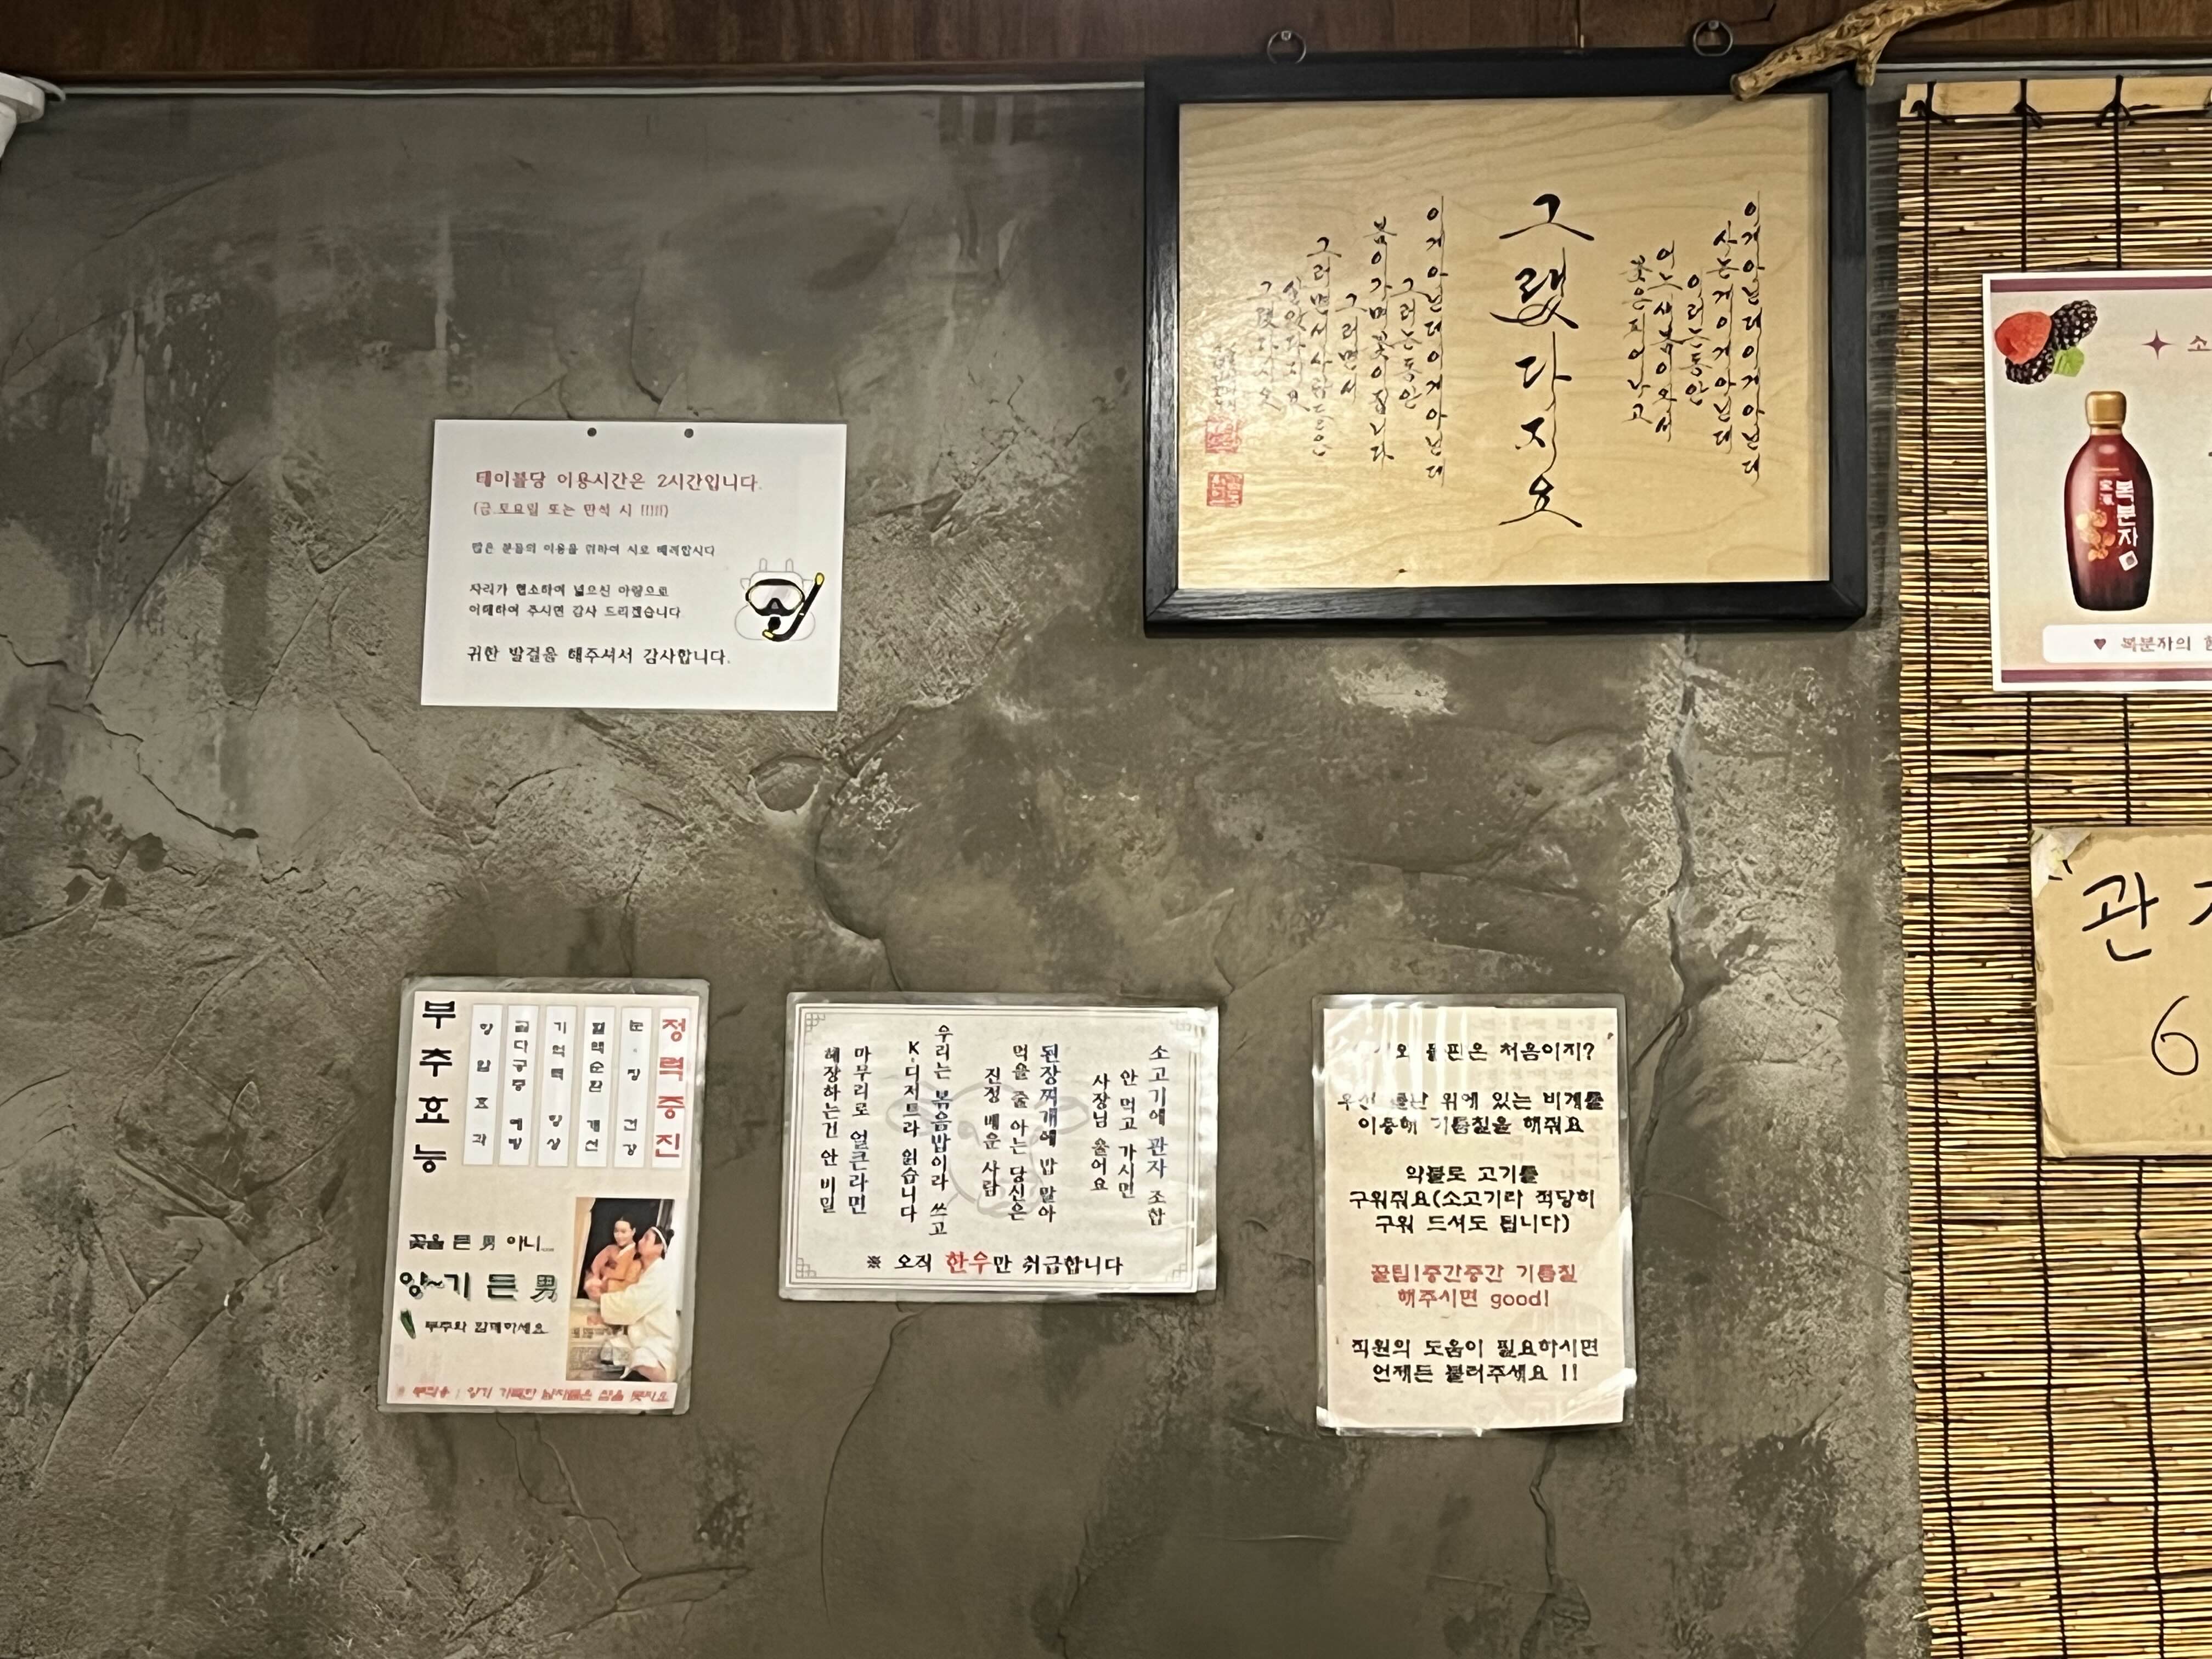 테이블당 이용시간은 2시간입니다.
(금.토요일 또는 만석 시 !!!!!)
많은 분들의 이용을 위하여 서로 배려합시다
자리가 협소하여 넓으신 아량으로
이해하여 주시면 감사 드리겠습니다
귀한 발걸음 해주셔서 감사합니다.
이게 아닌데 이게 아닌데
사는게 이게 아닌데
이러는 동안
어느새 봄이 와서
꽃은 피어나고
그랬다지요
이게 아닌데 이게 아닌데
그러는 동안
봄이 가며 꽃이 집니다
그러면서
그러면서 사람들은
살았다지요
그랬다지요
복분자
♥ 복분자의
"관
6
부추효능
항암효과
골다공증 예방
기억력 향상
혈액순환 개선
눈·장 건강
정력증진
꽃을 든 男 아니....
양~기 든 男
부추와 함께하세요
※ 부작용 : 양기 가득한 남자들은 참을 못자요
소고기에 관자 조합
안 먹고 가시면
사장님 울어요
된장찌개에 밥 말아
먹을 줄 아는 당신은
진정 배운 사람
우리는 볶음밥이라 쓰고
K-디저트라 읽습니다
마무리로 얼큰라면
해장하는건 안 비밀
※ 오직 한우만 취급합니다
돌판은 처음이지?
우선 위에 있는 비계를
이용해 기름칠을 해줘요
약불로 고기를
구워줘요(소고기라 적당히
구워 드셔도 됩니다)
꿀팁!중간중간 기름칠
해주시면 good!
직원의 도움이 필요하시면
언제든 불러주세요 !!